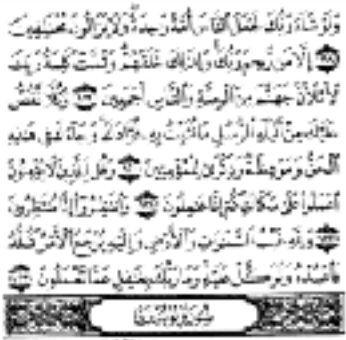 وَلَوْ شَاءَ رَبُّكَ لَجَعَلَ النَّاسَ أُمَّةً وَاحِدَةً وَلَا يَزَالُونَ مُخْتَلِفِينَ
١١٨ إِلَّا مَن رَّحِمَ رَبُّكَ وَلِذَٰلِكَ خَلَقَهُمْ وَتَمَّتْ كَلِمَةُ رَبِّكَ
لَأَمْلَأَنَّ جَهَنَّمَ مِنَ الْجِنَّةِ وَالنَّاسِ أَجْمَعِينَ ١١٩ وَكُلًّا نَّقُصُّ
عَلَيْكَ مِنْ أَنبَاءِ الرُّسُلِ مَا نُثَبِّتُ بِهِ فُؤَادَكَ وَجَاءَكَ فِي هَٰذِهِ
الْحَقُّ وَمَوْعِظَةٌ وَذِكْرَىٰ لِلْمُؤْمِنِينَ ١٢٠ وَقُل لِّلَّذِينَ لَا يُؤْمِنُونَ
اعْمَلُوا عَلَىٰ مَكَانَتِكُمْ إِنَّا عَامِلُونَ ١٢١ وَانتَظِرُوا إِنَّا مُنتَظِرُونَ
١٢٢ وَلِلَّهِ غَيْبُ السَّمَاوَاتِ وَالْأَرْضِ وَإِلَيْهِ يُرْجَعُ الْأَمْرُ كُلُّهُ
فَاعْبُدْهُ وَتَوَكَّلْ عَلَيْهِ وَمَا رَبُّكَ بِغَافِلٍ عَمَّا تَعْمَلُونَ ١٢٣
سُورَةُ يُوسُفَ